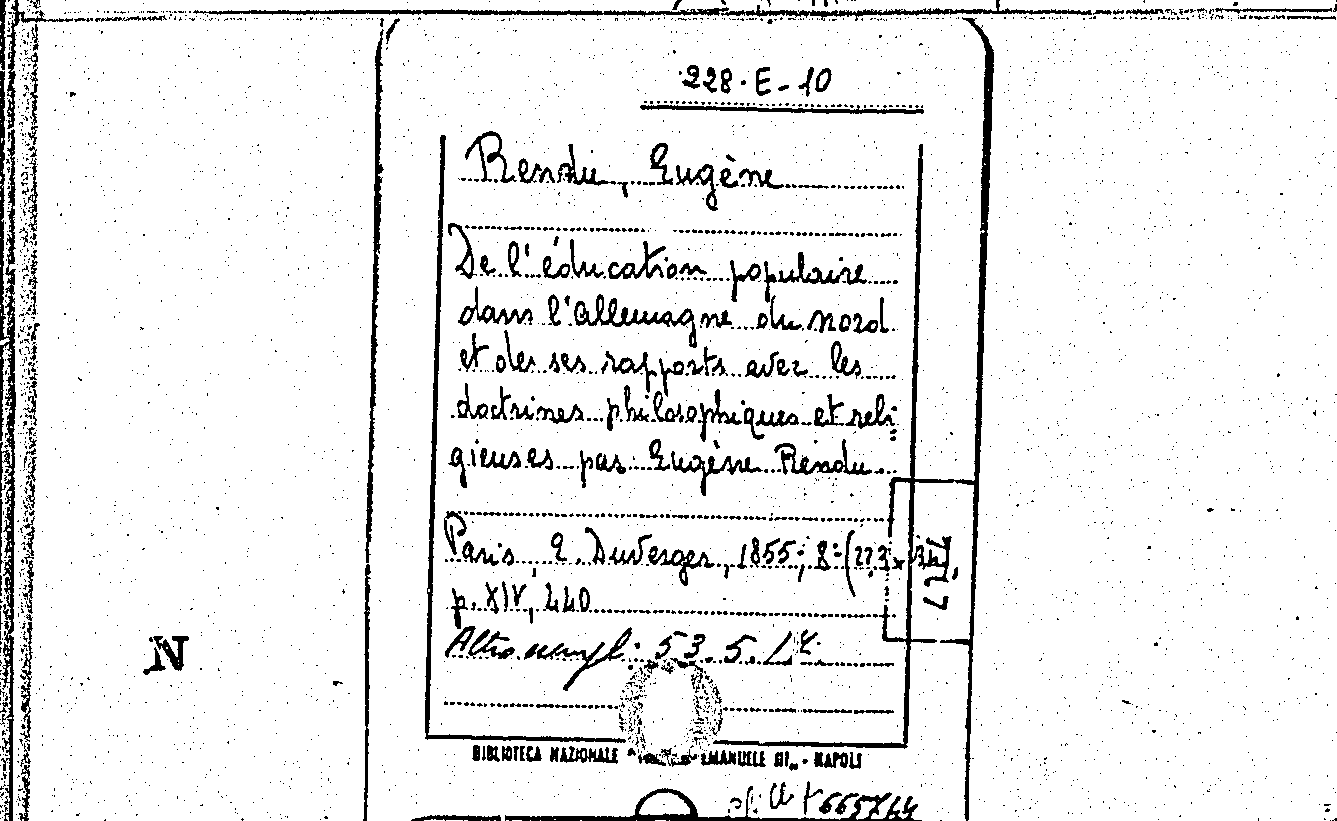 228·E-10
Rendu, Eugène
De l'éducation populaire
dans l'allemagne du nord
et de ses rapports avec les
doctrines philosophiques et reli=
gieuses par Eugène Rendu.
Paris, 2. Duverger, 1855; 8º (22,3 x
p. XIV, 240
Altro esempl: 53.5.
N
BIBLIOTECA NAZIONALE EMANUELE III„ - NAPOLI